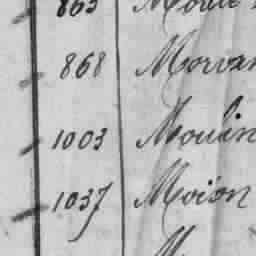 863
868 Morvan
1003 Moulin
1037 Moison